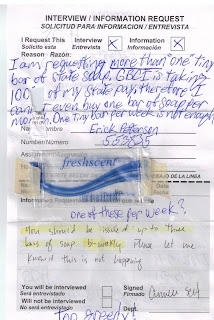 INTERVIEW / INFORMATION REQUEST
SOLICITUD PARA INFORMACION / ENTREVISTA
I Request This
Solicito esta
Interview
Entrevista
Information
Información
Reason Razón:
I am requesting more than one tiny
bar of state soap. GBCI is taking
100% of my state pay, therefore I
can't even buy one bar of soap per
month. One tiny bar per week is not enough.
Erick Petersen
Number Número
freshscent
BAJO DE LA LINEA
one of these per week?
You should be issued up to three
bars of soap bi-weekly. Please let me
know if this is not happening
You will be interviewed
Será entrevistado
Will not be interviewed
No será entrevistado
Signed
Firmado
Dept.